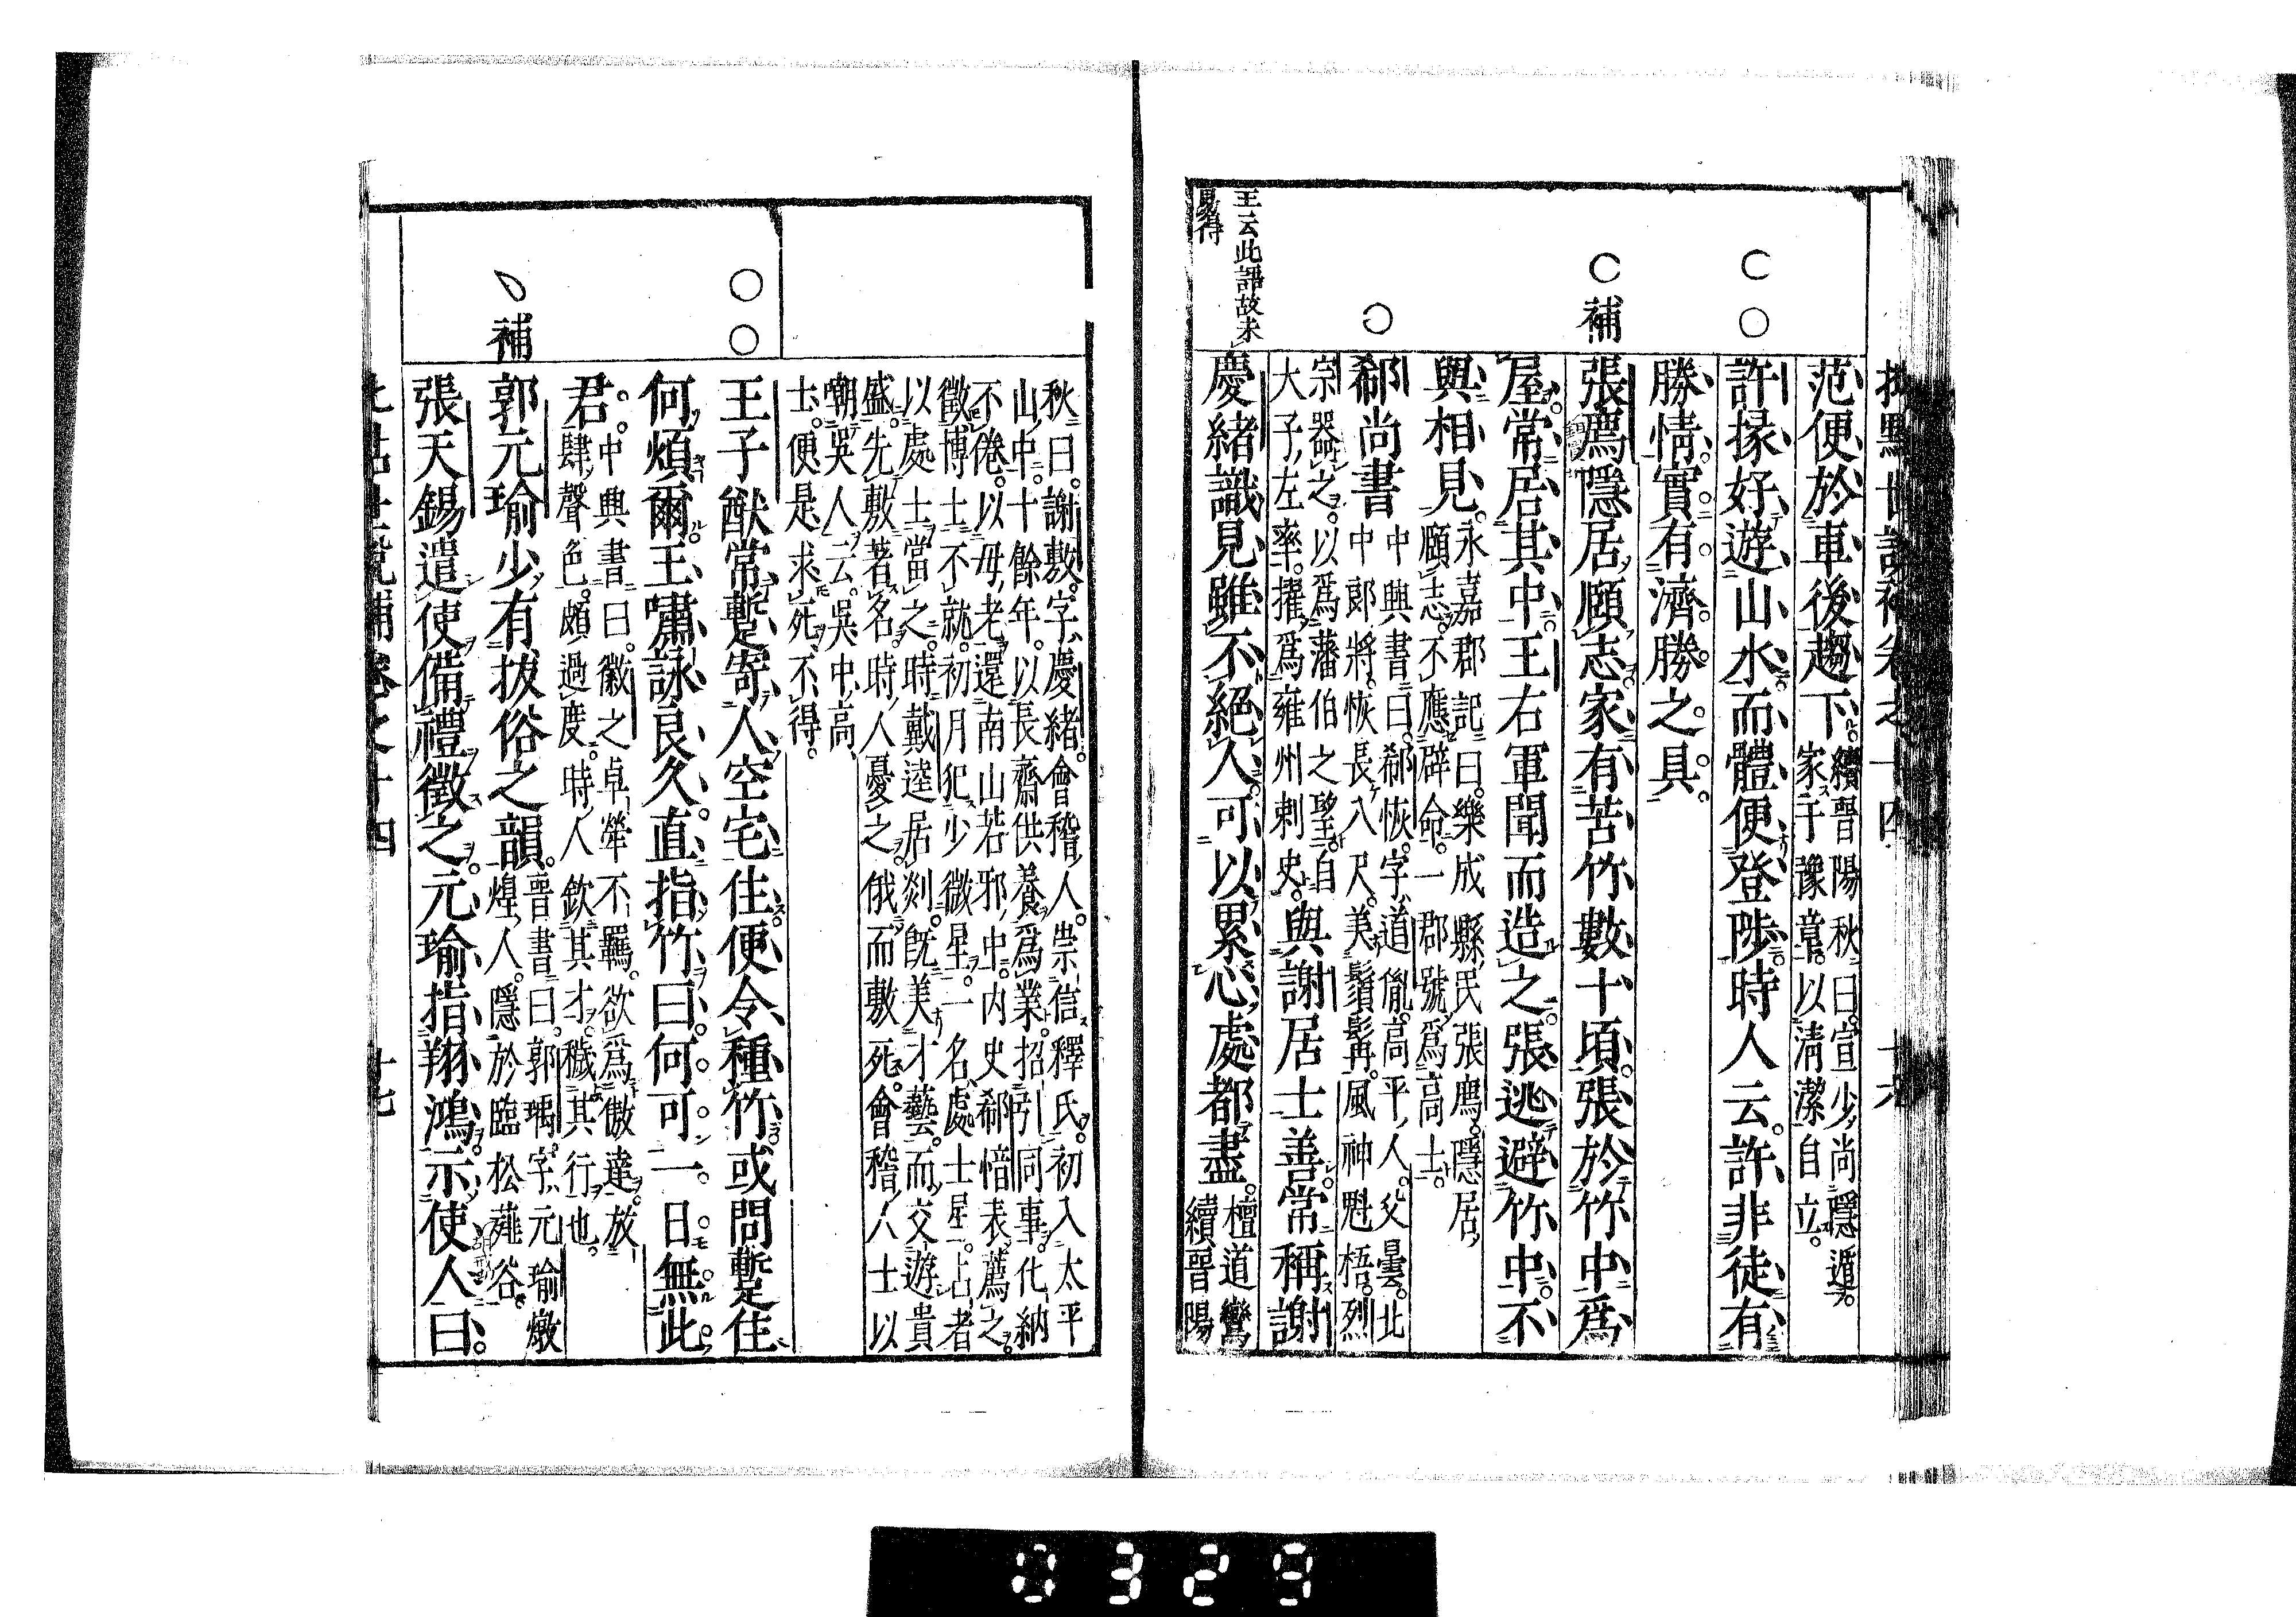 批點世說補卷之十四　十六
范便於車後趨下。續晉陽秋曰。宣少尚隱遁。
家于豫章。以清潔自立。
許掾好遊山水而體便登陟時人云。許非徒有
勝情。實有濟勝之具。
補
張廌隱居頤志。家有苦竹數十頃。張於竹中為
屋。常居其中。王右軍聞而造之。張逃避竹中。不
與相見。永嘉郡記曰。樂成縣民張廌。隱居
頤志。不應辟命。一郡號為高士。
郗尚書中興書曰。郗恢。字道胤。高平人。父曇。北
中郎將。恢長八尺。美鬚髯。風神魁梧。烈
宗器之。以為藩伯之望。自
大子左率。擢為雍州刺史。與謝居士善。常稱謝
王云此語故未
易得
慶緒識見雖不絕人。可以累心處都盡。檀道鸞
續晉陽
秋曰。謝敷。字慶緒。會稽人。崇信釋氏。初入太平
山中。十餘年。以長齋供養為業。招引同事。化納
不倦。以母老還南山若邪中。內史郗愔表薦之。
徵博士不就。初月犯少微星。一名處士星。占者
以處士當之。時戴逵居剡。既美才藝。而交遊貴
盛。先敷著名。時人憂之。俄而敷死。會稽人士以
嘲吳人云。吳中高
士。便是求死不得。
王子猷常蹔寄人空宅住。便令種竹。或問蹔住
何煩爾。王嘯詠良久。直指竹曰。何可一日無此
君。中興書曰。徽之卓犖不羈。欲為傲達。放
肆聲色。頗過度。時人欽其才。穢其行也。
補
郭元瑜少有拔俗之韻。晉書曰。郭瑀。字元瑜。燉
煌人。隱於臨松薤谷。
張天錫遣使備禮徵之。元瑜指翔鴻示使人曰。
批點世說補卷之十四　十七
0329